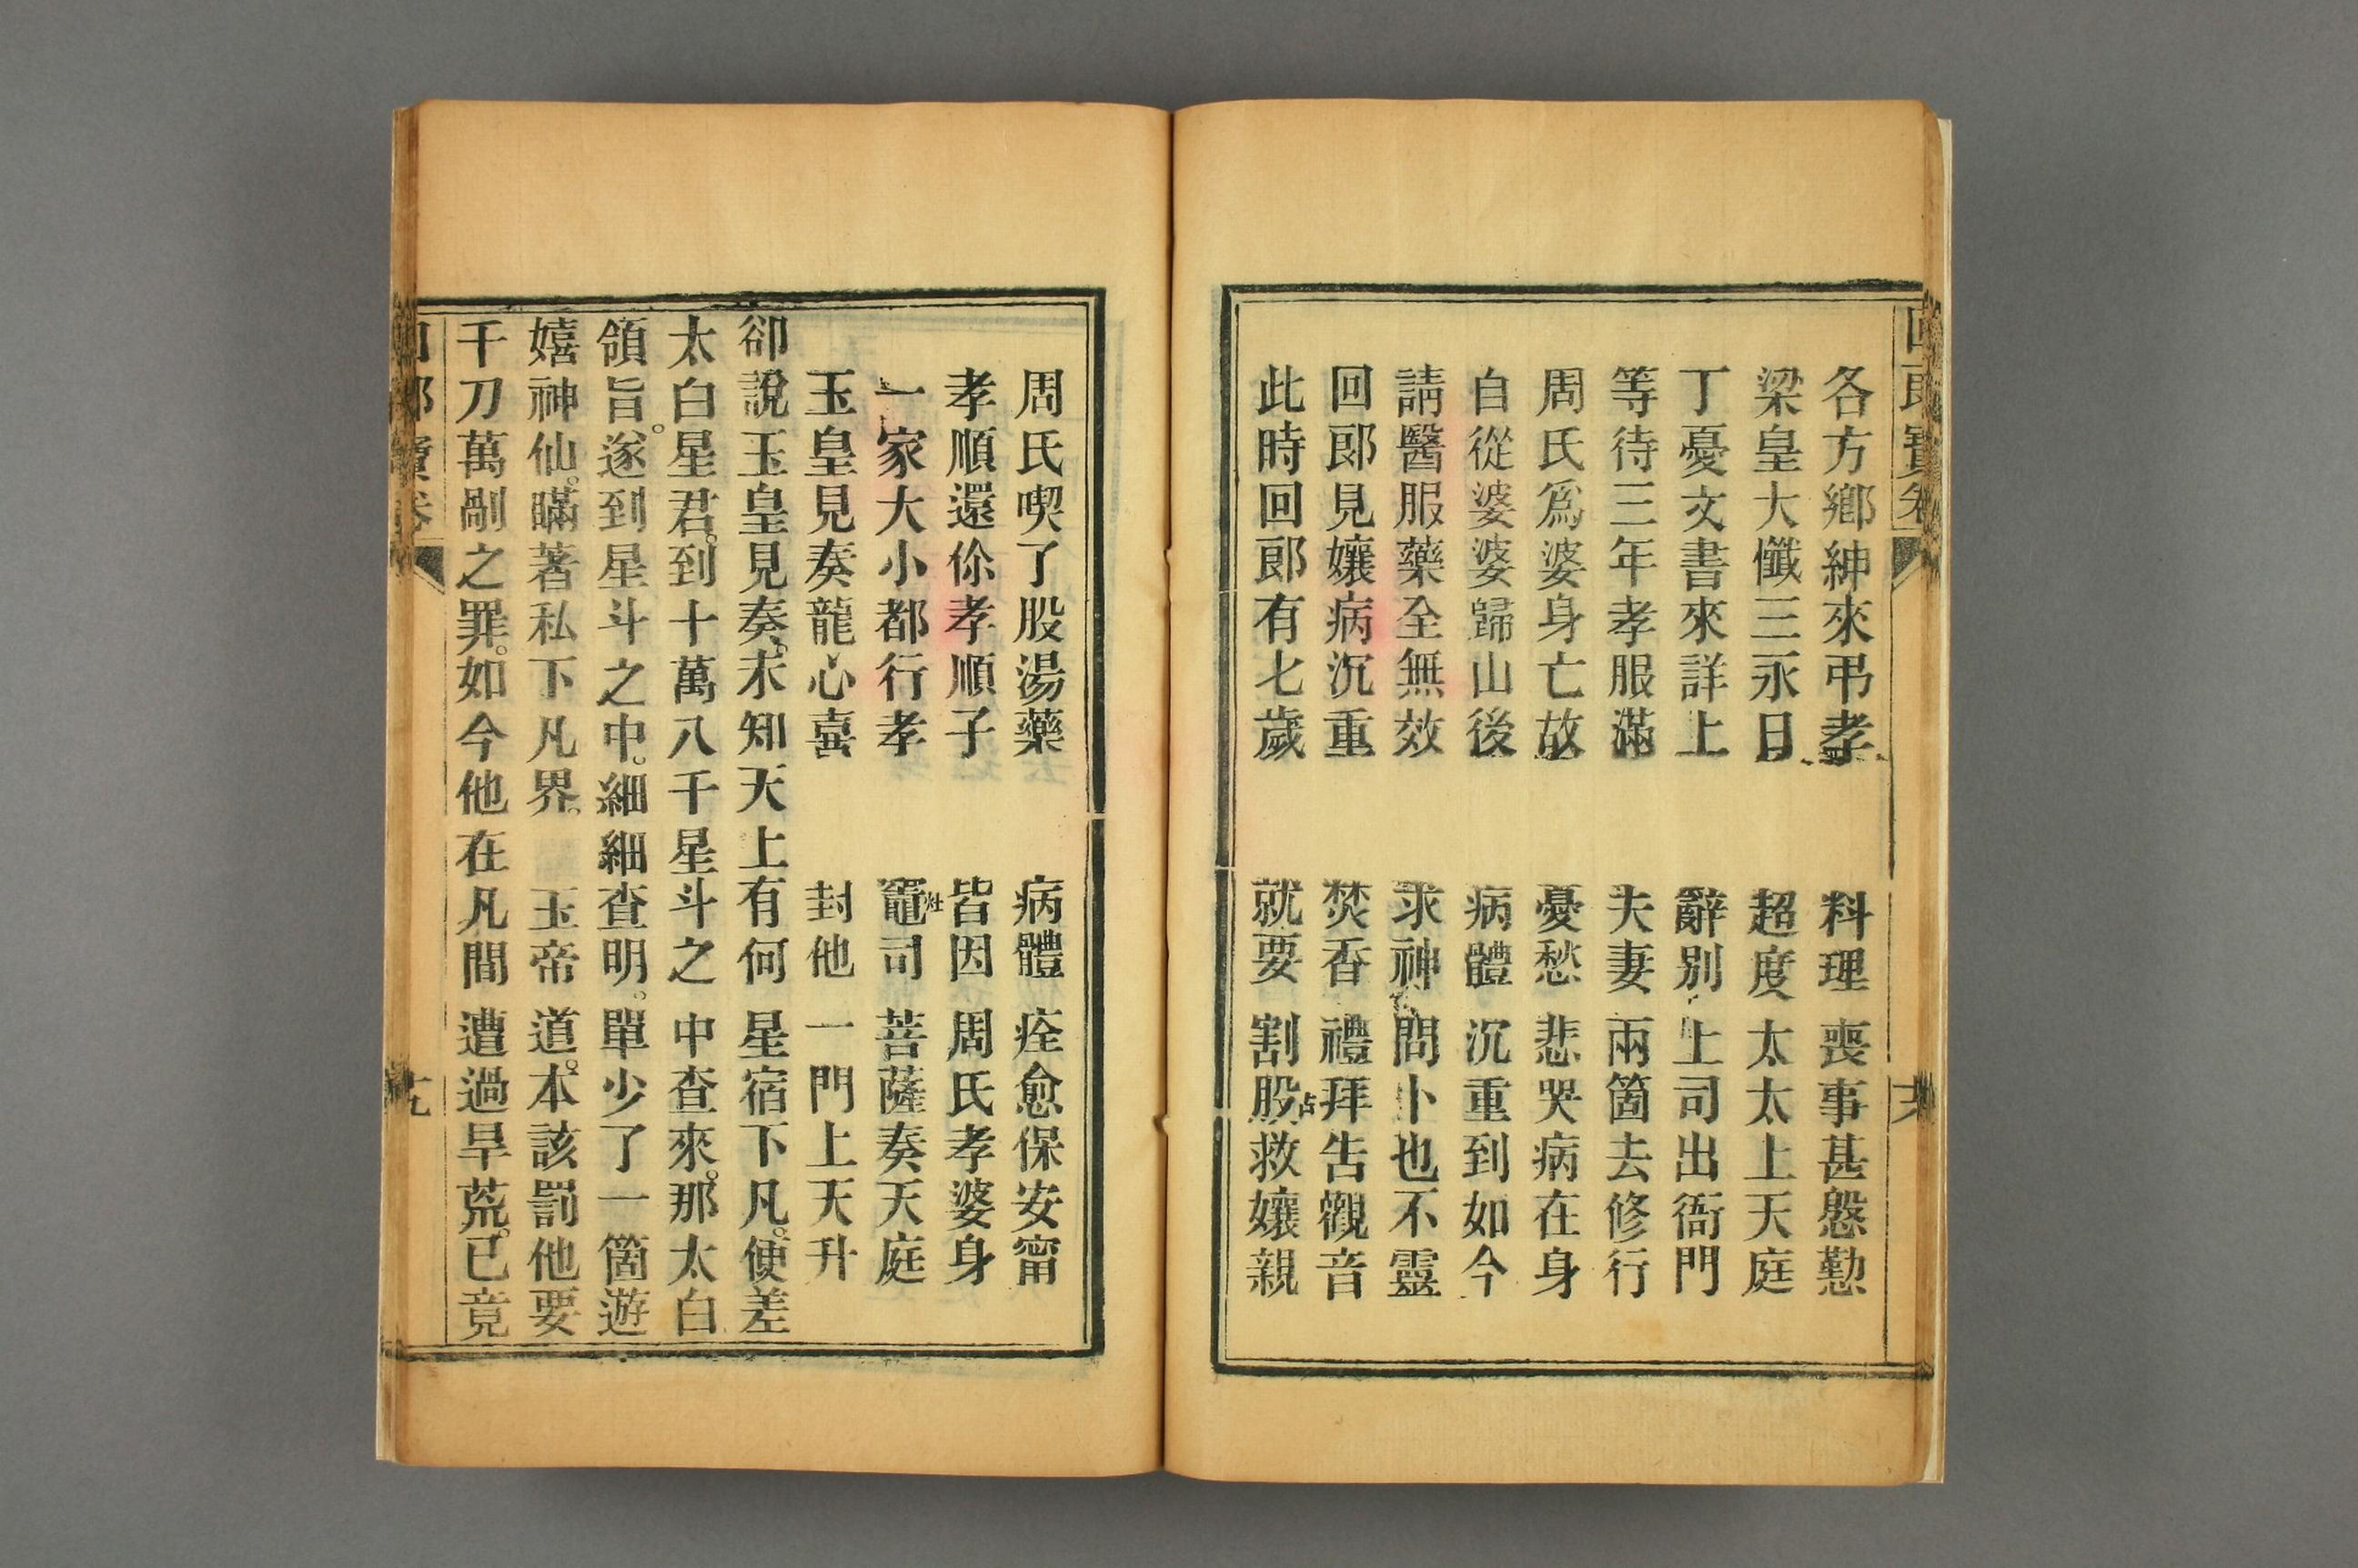 回郎寶卷
各方鄉紳來弔孝 料理喪事甚慇懃
梁皇大懺三永日 超度太太上天庭
丁憂文書來詳上 辭別上司出衙門
等待三年孝服滿 夫妻兩箇去修行
周氏爲婆身亡故 憂愁悲哭病在身
自從婆婆歸山後 病體沉重到如今
請醫服藥全無效 求神問卜也不靈
回郎見孃病沉重 焚香禮拜告觀音
此時回郎有七歲 就要割股救孃親
周氏喫了股湯藥 病體痊愈保安甯
孝順還伱孝順子 皆因周氏孝婆身
一家大小都行孝 竈司菩薩奏天庭
玉皇見奏龍心喜 封他一門上天升
卻說玉皇見奏。未知天上有何星宿下凡。便差
太白星君。到十萬八千星斗之中查來。那太白
領旨。遂到星斗之中。細細查明。單少了一箇遊
嬉神仙。瞞著私下凡界。 玉帝道。本該罰他要
千刀萬剮之罪。如今他在凡間遭過旱荒。已竟
郎寶卷